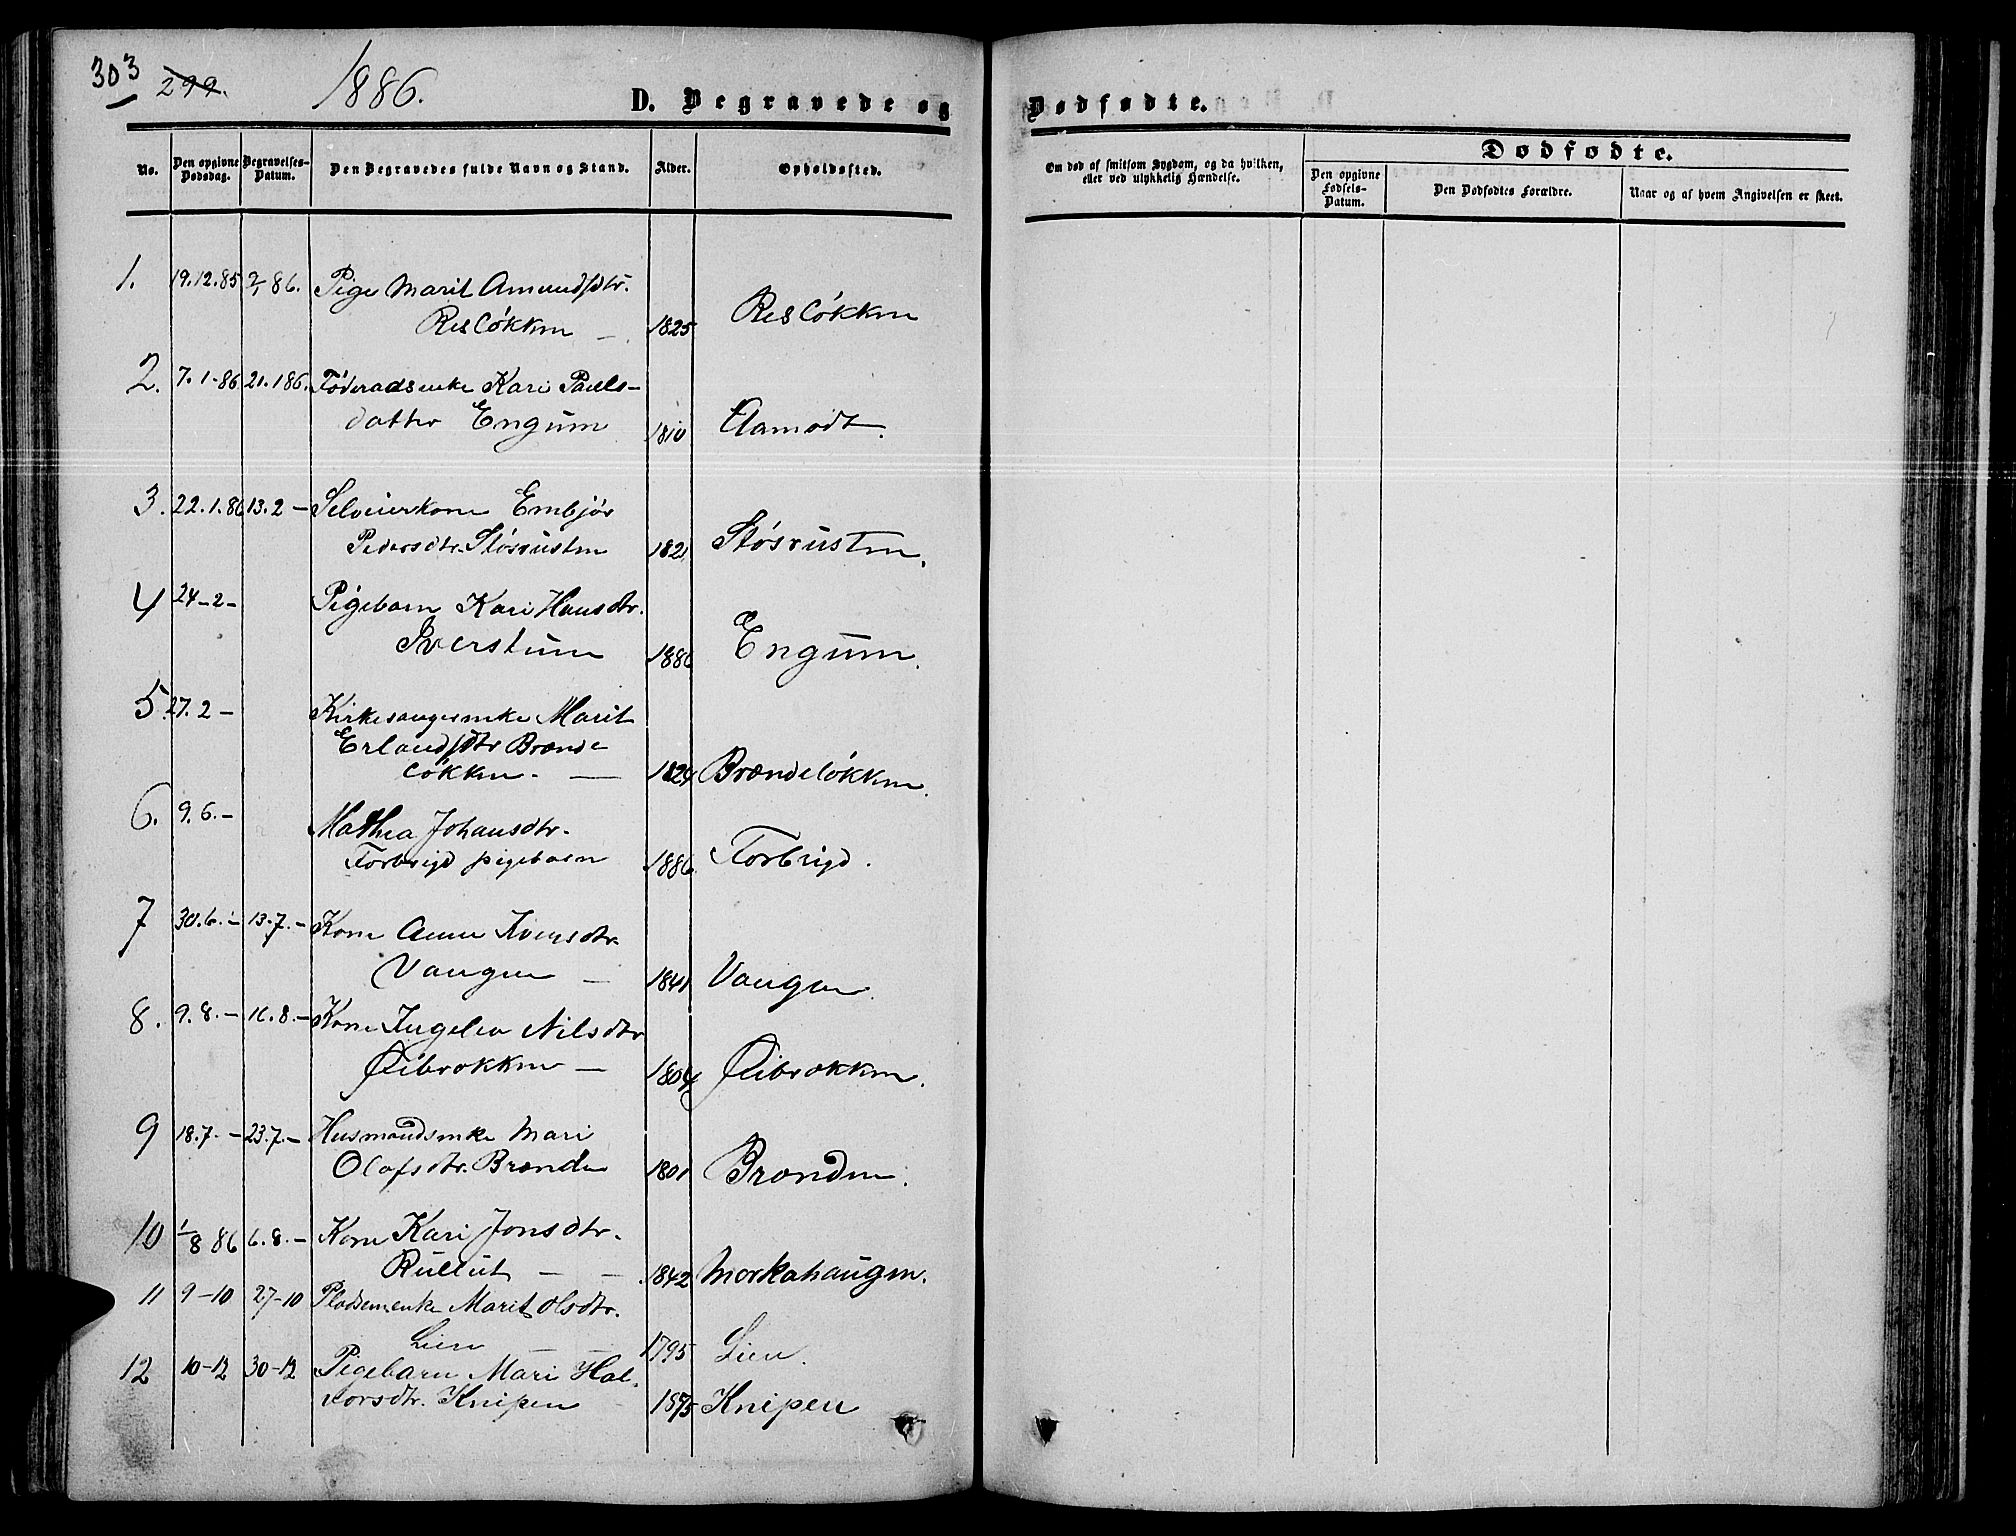 303 299. 1886. D. Begravede og Dødfødte.
No. Den opgivne Dødsdag. Begravelses-Datum. Den Begravedes fulde Navn og Stand. Alder. Opholdssted. Om død af smitsom Sygdom, og da hvilken, eller ved ulykkelig Hændelse. Dødfødte.
Den opgivne Fødsels-Datum. Den Dødfødtes Forældre. Naar og af hvem Angivelsen er skeet.
1. 19.12.85 2/1 86. Pige Marit Amundsdtr.
Resløkken — 1825 Resløkken
2. 7.1-86 21.1 86. Føderaadsenke Kari Pauls-
datter Engum 1810 Aamodt.
3. 22.1.86 13.2 — Selveierkone Embjør
Pedersdtr. Støsrusten 1821 Støsrusten.
4 24-2- Pigebarn Kari Hansdtr.
Sverstuen 1886 Engum.
5. 27.2 — Kirkesangerenke Marit
Erlandsdtr Brænde
løkken. — 1824 Brændeløkken.
6. 9.6.— Mathea Johansdtr.
Forbrigd pigebarn 1886 Forbrigd.
7 30.6.- 13.7.- Kone Anne Iversdtr.
Vangen — 1841 Vangen.
8. 9.8.— 16.8.— Kone Ingelev Nilsdtr
Øibrokken — 1804 Øibrokken.
9 18.7.— 23.7.— Husmandsenke Mari
Olafsdtr. Brænden 1801 Brænden.
10 1/8 86 6.8.— Kone Kari Jonsdtr.
Rullut — — 1842 Morkahaugen.
11 9-10 27-10 Pladsemenke Marit Olsdtr.
Lien — — 1795 Lien.
12 10-12 30-12 Pigebarn Mari Hal-
vorsdtr. Knipen 1875 Knipen